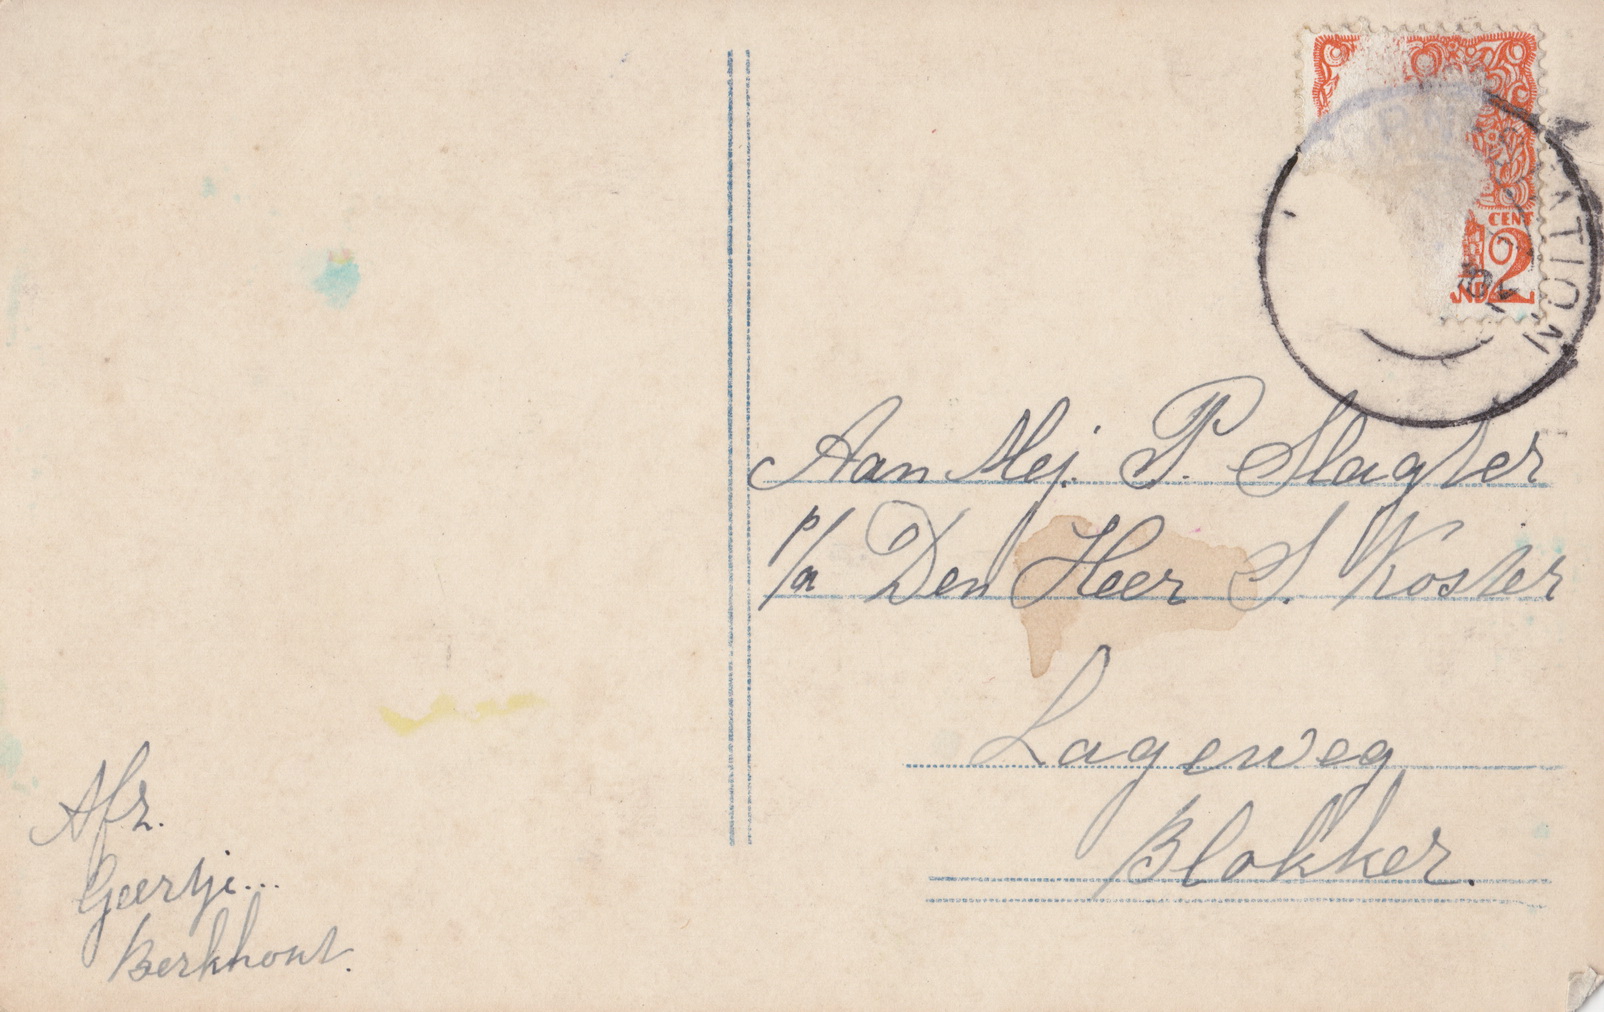 CENT
2
ND
ATION
Aan Mej. P. Slagter
p/a Den Heer S. Koster
Lageweg
Blokker.
Afz.
Geertje...
Berkhout.